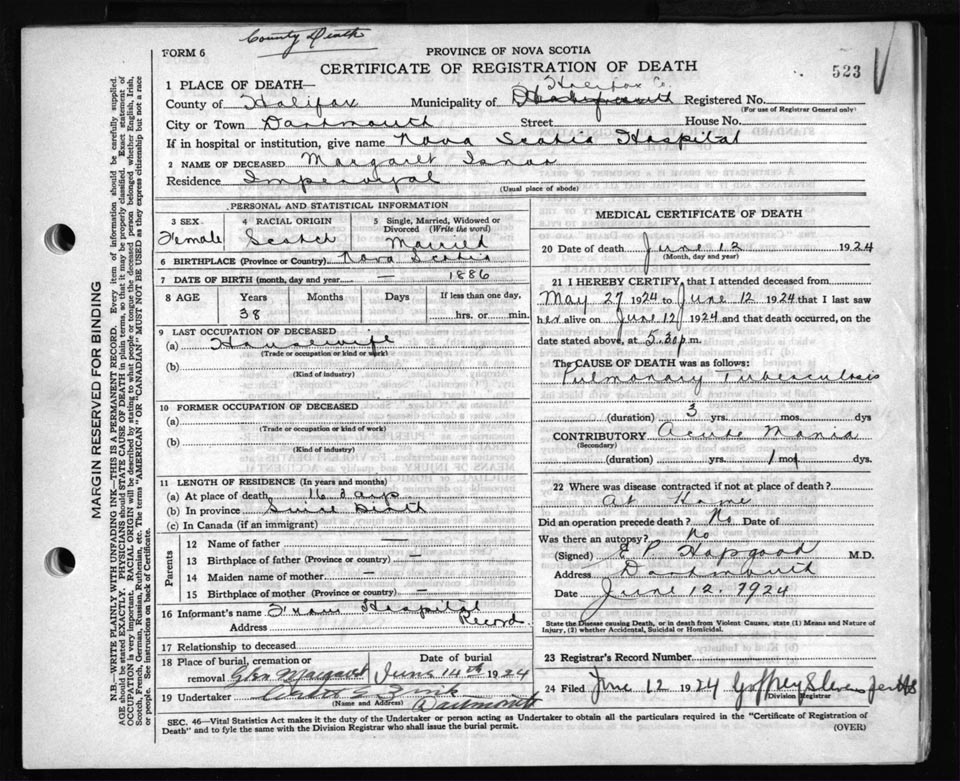 County Death
FORM 6
PROVINCE OF NOVA SCOTIA
CERTIFICATE OF REGISTRATION OF DEATH
523
1 PLACE OF DEATH—
Halifax Co.
County of Halifax Municipality of Dartmouth Registered No.
(For use of Registrar General only)
City or Town Dartmouth Street House No.
If in hospital or institution, give name Nova Scotia Hospital
2 NAME OF DECEASED Margaret
Residence Imperoyal
(Usual place of abode)
PERSONAL AND STATISTICAL INFORMATION
3 SEX Female
4 RACIAL ORIGIN Scotch
5 Single, Married, Widowed or Divorced (Write the word) Married
6 BIRTHPLACE (Province or Country) Nova Scotia
7 DATE OF BIRTH (month, day and year) — 1886
8 AGE Years Months Days If less than one day,
38 hrs. or min.
9 LAST OCCUPATION OF DECEASED
(a) Housewife
(Trade or occupation or kind or work)
(b)
(Kind of industry)
10 FORMER OCCUPATION OF DECEASED
(a)
(Trade or occupation or kind of work)
(b)
(Kind of industry)
11 LENGTH OF RESIDENCE (In years and months)
(a) At place of death 16 days
(b) In province Since
(c) In Canada (if an immigrant)
Parents
12 Name of father —
13 Birthplace of father (Province or country) —
14 Maiden name of mother —
15 Birthplace of mother (Province or country) —
16 Informant's name From Hospital
Address Record
17 Relationship to deceased
18 Place of burial, cremation or removal Glen Margaret
Date of burial June 14th 1924
19 Undertaker
(Name and Address) Dartmouth
MEDICAL CERTIFICATE OF DEATH
20 Date of death June 12 1924
(Month, day and year)
21 I HEREBY CERTIFY that I attended deceased from
May 27 1924 to June 12 1924 that I last saw
her alive on June 12 1924 and that death occurred, on
date stated above, at 5.30 p.m.
The CAUSE OF DEATH was as follows:
Pulmonary Tuberculosis
(duration) 3 yrs. mos. dys
CONTRIBUTORY Acute Mania
(Secondary)
(duration) yrs. 1 mos dys.
22 Where was disease contracted if not at place of death?
At Home
Did an operation precede death? No Date of
Was there an autopsy? No
(Signed) E P Hopgood M.D.
Address Dartmouth
Date June 12. 1924
State the Disease causing Death, or in death from Violent Causes, state (1) Means and Nature of Injury, (2) whether Accidental, Suicidal or Homicidal.
23 Registrar's Record Number
24 Filed June 12 1924
Division Registrar
SEC. 46—Vital Statistics Act makes it the duty of the Undertaker or person acting as Undertaker to obtain all the particulars required in the "Certificate of Registration of
Death" and to fyle the same with the Division Registrar who shall issue the burial permit.
(OVER)
MARGIN RESERVED FOR BINDING
N.B.—WRITE PLAINLY WITH UNFADING INK—THIS IS A PERMANENT RECORD. Every item of information should be carefully supplied.
AGE should be stated EXACTLY. PHYSICIANS should STATE CAUSE OF DEATH in plain terms, so that it may be properly classified. Exact statement of
OCCUPATION is very important. RACIAL ORIGIN will be described by stating to what people or tongue the deceased person belonged whether English, Irish,
Scotch, French, German, Russian, Ruthenian, etc. The terms "AMERICAN" or "CANADIAN" MUST NOT BE USED as they express citizenship but not a race
or people. See instructions on back of Certificate.